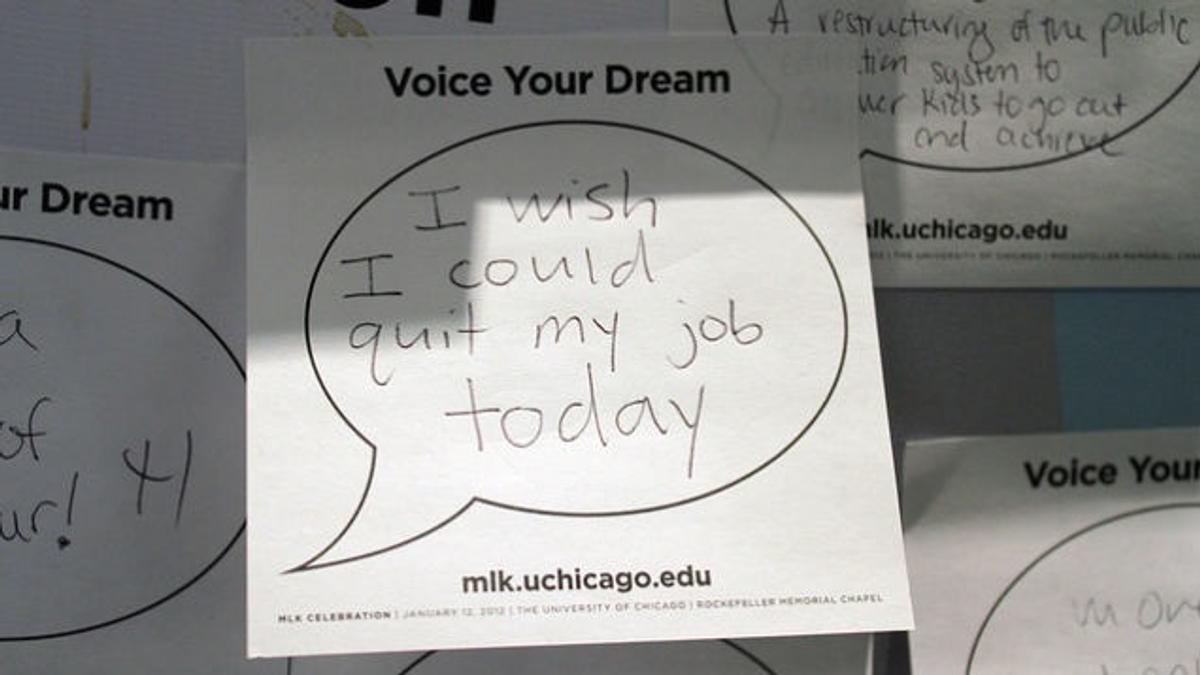 Voice Your Dream
I wish
I could
quit my job
today
mlk.uchicago.edu
MLK CELEBRATION | JANUARY 12, 2012 | THE UNIVERSITY OF CHICAGO | ROCKEFELLER MEMORIAL CHAPEL
ur Dream
a
of
ur!
A restructuring of the public
tion system to
kids to go out
and achieve
mlk.uchicago.edu
THE UNIVERSITY OF CHICAGO | ROCKEFELLER MEMORIAL
Voice Your